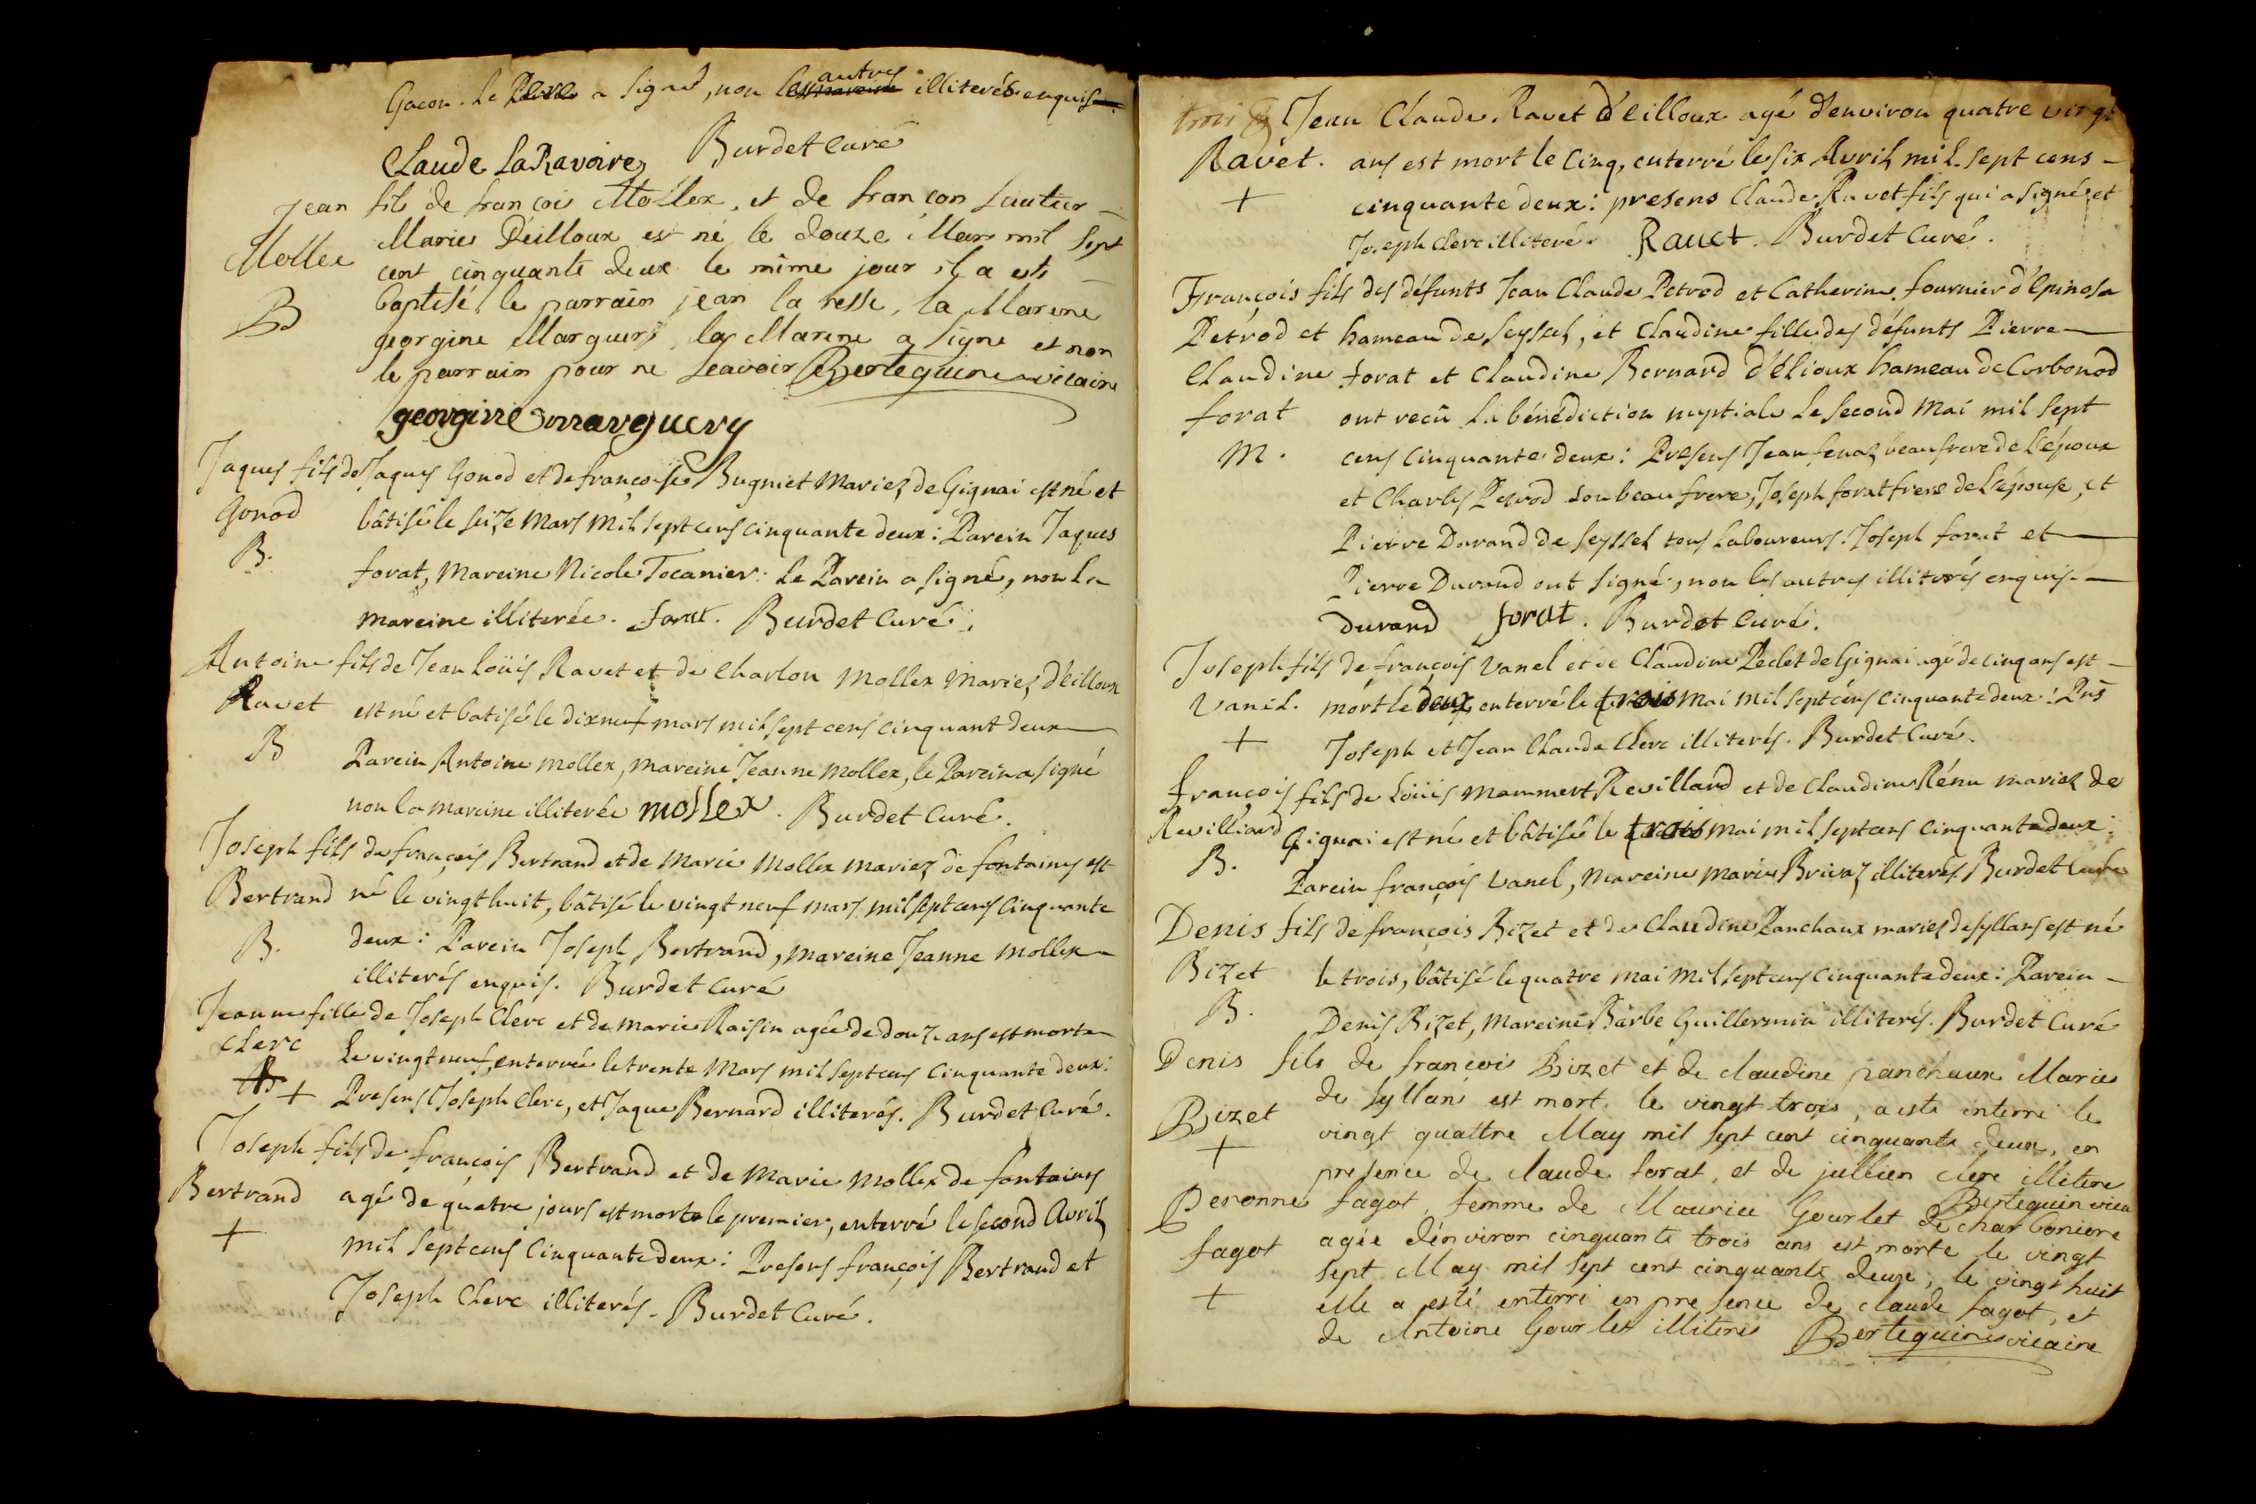 Gacon. Le Pere a signé, non les autres illiterés enquis
Claude LaRavoire Burdet Curé
Jean fils de françois Mollex, et de françon Sautier
Maries D'éilloux est né le douze Mars mil sept
Mollex
cent cinquante deux le même jour il a esté
B
baptisé, le parrain jean la resse, la Marene
georgine Marguery, la Marene a signe et non
le parrain pour ne scavoir Berteguin vicaire
georgine marguery
Jaques fils de Jaques Gonod et de françoise Bugniet Mariez de Gignai est né et
Gonod bâtisé le seize Mars mil sept cens cinquante deux : Parein Jaques
B.
forat, Mareine Nicole Tocanier : Le Parein a signé, non la
mareine illiterée. forat. Burdet Curé.
Antoine fils de Jean Loüis Ravet et de Charlon Mollex Mariez d'éilloux
Ravet est né et batisé le dixneuf mars mil sept cens cinquant deux
B Parein Antoine mollex, mareine Jeanne mollex, le Parein a signé
non la mareine illiterée mollex. Burdet Curé.
Joseph fils de françois Bertrand et de Marie Mollex mariez de fontaines est
Bertrand né le vingthuit, bâtisé le vingt neuf mars mil sept cens cinquante
B. deux : Parein Joseph Bertrand, mareine Jeanne mollex
illiterés enquis. Burdet Curé
Jeanne fille de Joseph Clerc et de Marie Raisin agée de douze ans est morte
Clerc Le vingt neuf, enterrée le trente Mars mil sept cens cinquante deux :
B + Presens Joseph Clerc, et Jaque Bernard illiterés. Burdet Curé.
Joseph fils de françois Bertrand et de Marie Mollex de fontaines
Bertrand agé de quatre jours est morte le premier, enterré le second Avril
+ mil sept cens cinquante deux : Presens françois Bertrand et
Joseph Clerc illiterés. Burdet Curé.
trois Jean Claude Ravet d'éilloux agé d'environ quatre vingt
Ravet. ans est mort le cinq, enterré le six Avril mil sept cens
+ cinquante deux : presens Claude Ravet fils qui a signé et
Joseph Clerc illiteré. Ravet. Burdet Curé.
François fils des défunts Jean Claude Petrod et Catherine fournier d'Epinosa
Petrod et hameau de Seyssel, et Claudine fille des défunts Pierre
Claudine forat et Claudine Bernard d'élioux hameau de Corbonod
forat ont reçû la bénédiction nuptiale Le second Mai mil sept
M. cens cinquante deux : Presens Jean fenaz beaufrere de l'époux
et Charles Petrod son beau frere, Joseph forat frere de l'épouse, et
Pierre Durand de Seyssel tous laboureurs. Joseph forat et
Pierre Durand ont signé, non les autres illiterés enquis.
Durand forat. Burdet Curé.
Joseph fils de françois Vanel et de Claudine Peclet de Gignai agé de cinq ans est
Vanel. mort le deux, enterré le trois Mai mil sept cens cinquante deux : Pñs
+ Joseph et Jean Claude Clerc illiterés. Burdet Curé.
François fils de Loüis Mammert Revillard et de Claudine Rénu mariez de
Revilliard Gignai est né et bâtisé le trois Mai mil sept cens cinquante deux :
B. Parein françois Vanel, Mareine Marie Brivaz illiterés Burdet Curé
Denis fils de françois Bizet et de Claudine Panchaux mariez de Syllans est né
Bizet le trois, bâtisé le quatre Mai mil sept cens cinquante deux : Parein
B. Denis Bizet, Mareine Barbe Guillermin illiterés. Burdet Curé
Denis fils de françois Bizet et de claudine panchaux Maries
de Syllans est mort le vingt trois, a esté interré le
Bizet
vingt quattre May mil sept cent cinquante deux, en
+
presence de claude forat, et de jullien clerc illitere
Berteguin vica
Peronne fagot, femme de Maurice Gourlet de charboniere
fagot agée d'environ cinquante trois ans est morte le vingt
sept May mil sept cent cinquante deux, le vingt huit
+ elle a esté enterré en presence de claude fagot, et
de Antoine Gourlet illiteres Berteguin vicaire